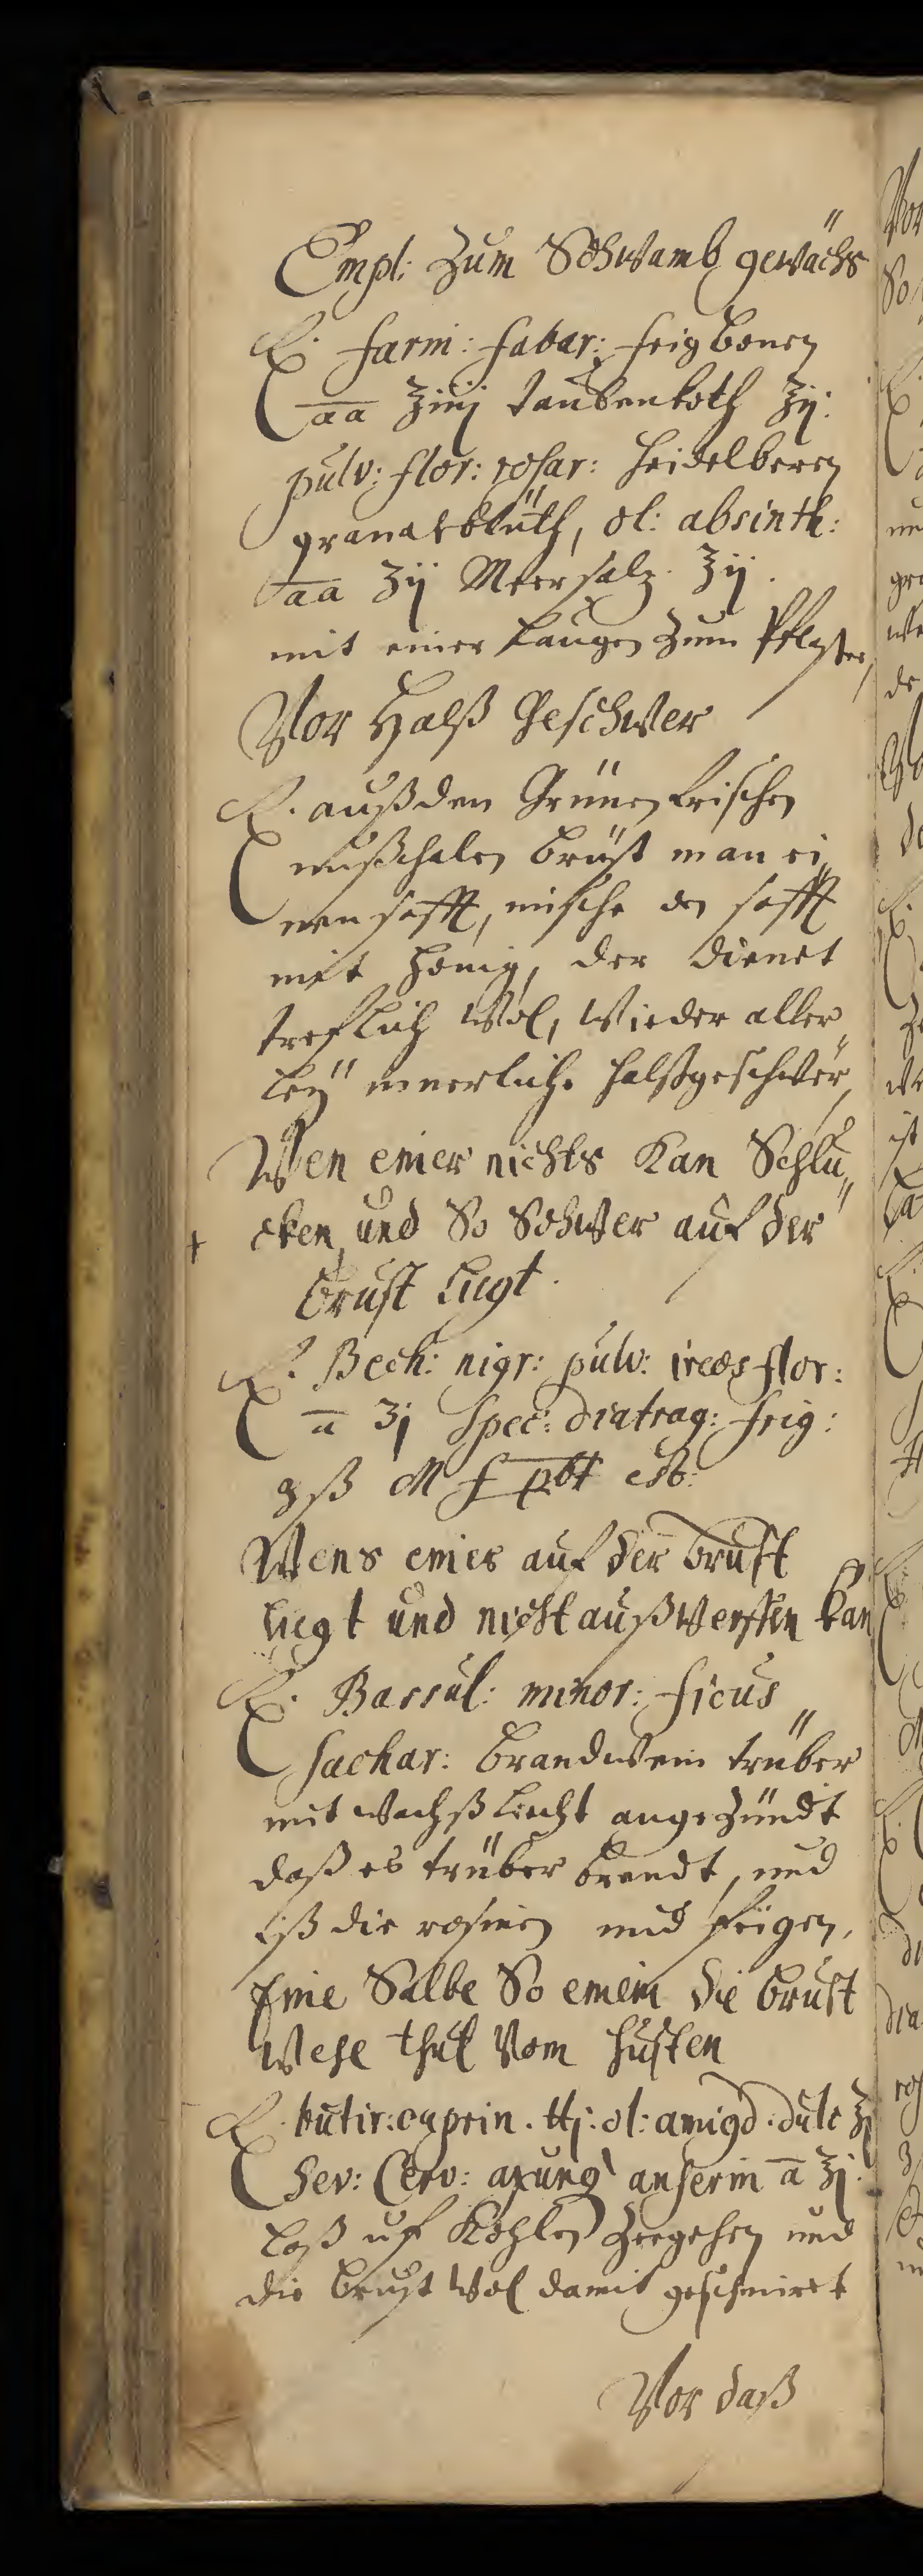 Empl: Zum Schwamb gewächs
℞. farin: fabar: feigbonen
aa ʒiiij taubenkoth ʒij:
pulv: flor: rosar: heidelberen
granatblüth, ol: absinth:
aa ʒij Meersalz. ʒij.
mit einer laugen zum Pflaster,
Vor Halß Geschwer
℞. auß den Grünen frischen
nußschalen brüst man ei„
nen safft, mische den safft
mit honig, der dienet
treflich wol, wieder aller„
leÿ innerliche halßgeschwer,
Wen einer nichts kan Schlu„
+ cken, und So Schwer auf der
brust liegt.
℞. Bech: nigr: pulv: ireos flor:
a ʒj Spec: diatrag: frig:
ʒß M f
Wens einer auf der brust
liegt und nicht außwerffen kan
℞. Bassul: minor: ficus
Sachar: brandwein trüber
mit wachß liecht angezündt
daß es trüber brendt, und
iß die rosinen und feigen.
Eine Salbe So einem die brust
Wehe thut Vom husten
℞. butir: caprin. ℔j: ol: amigd: dulc ʒj
Sev: Cerv: axung anserin a ʒj.
laß uf Kohlen zergehen und
die brust wol damit geschmiret
Vor daß